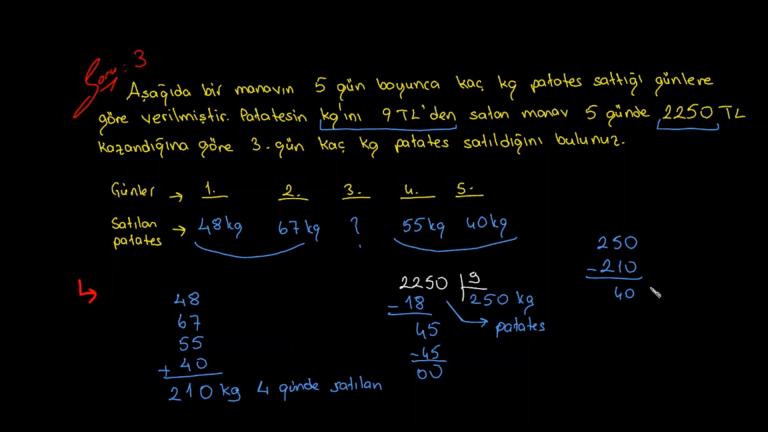 Soru: 3
Aşağıda bir manavın 5 gün boyunca kaç kg patates sattığı günlere
göre verilmiştir. Patatesin kg'ını 9 TL'den satan manav 5 günde 2250 TL
kazandığına göre 3. gün kaç kg patates satıldığını bulunuz.
Günler → 1. 2. 3. 4. 5.
Satılan patates → 48kg 67kg ? 55kg 40kg
48
67
55
+ 40
210 kg 4 günde satılan
2250 9
- 18 250 kg
45 patates
- 45
00
250
- 210
40